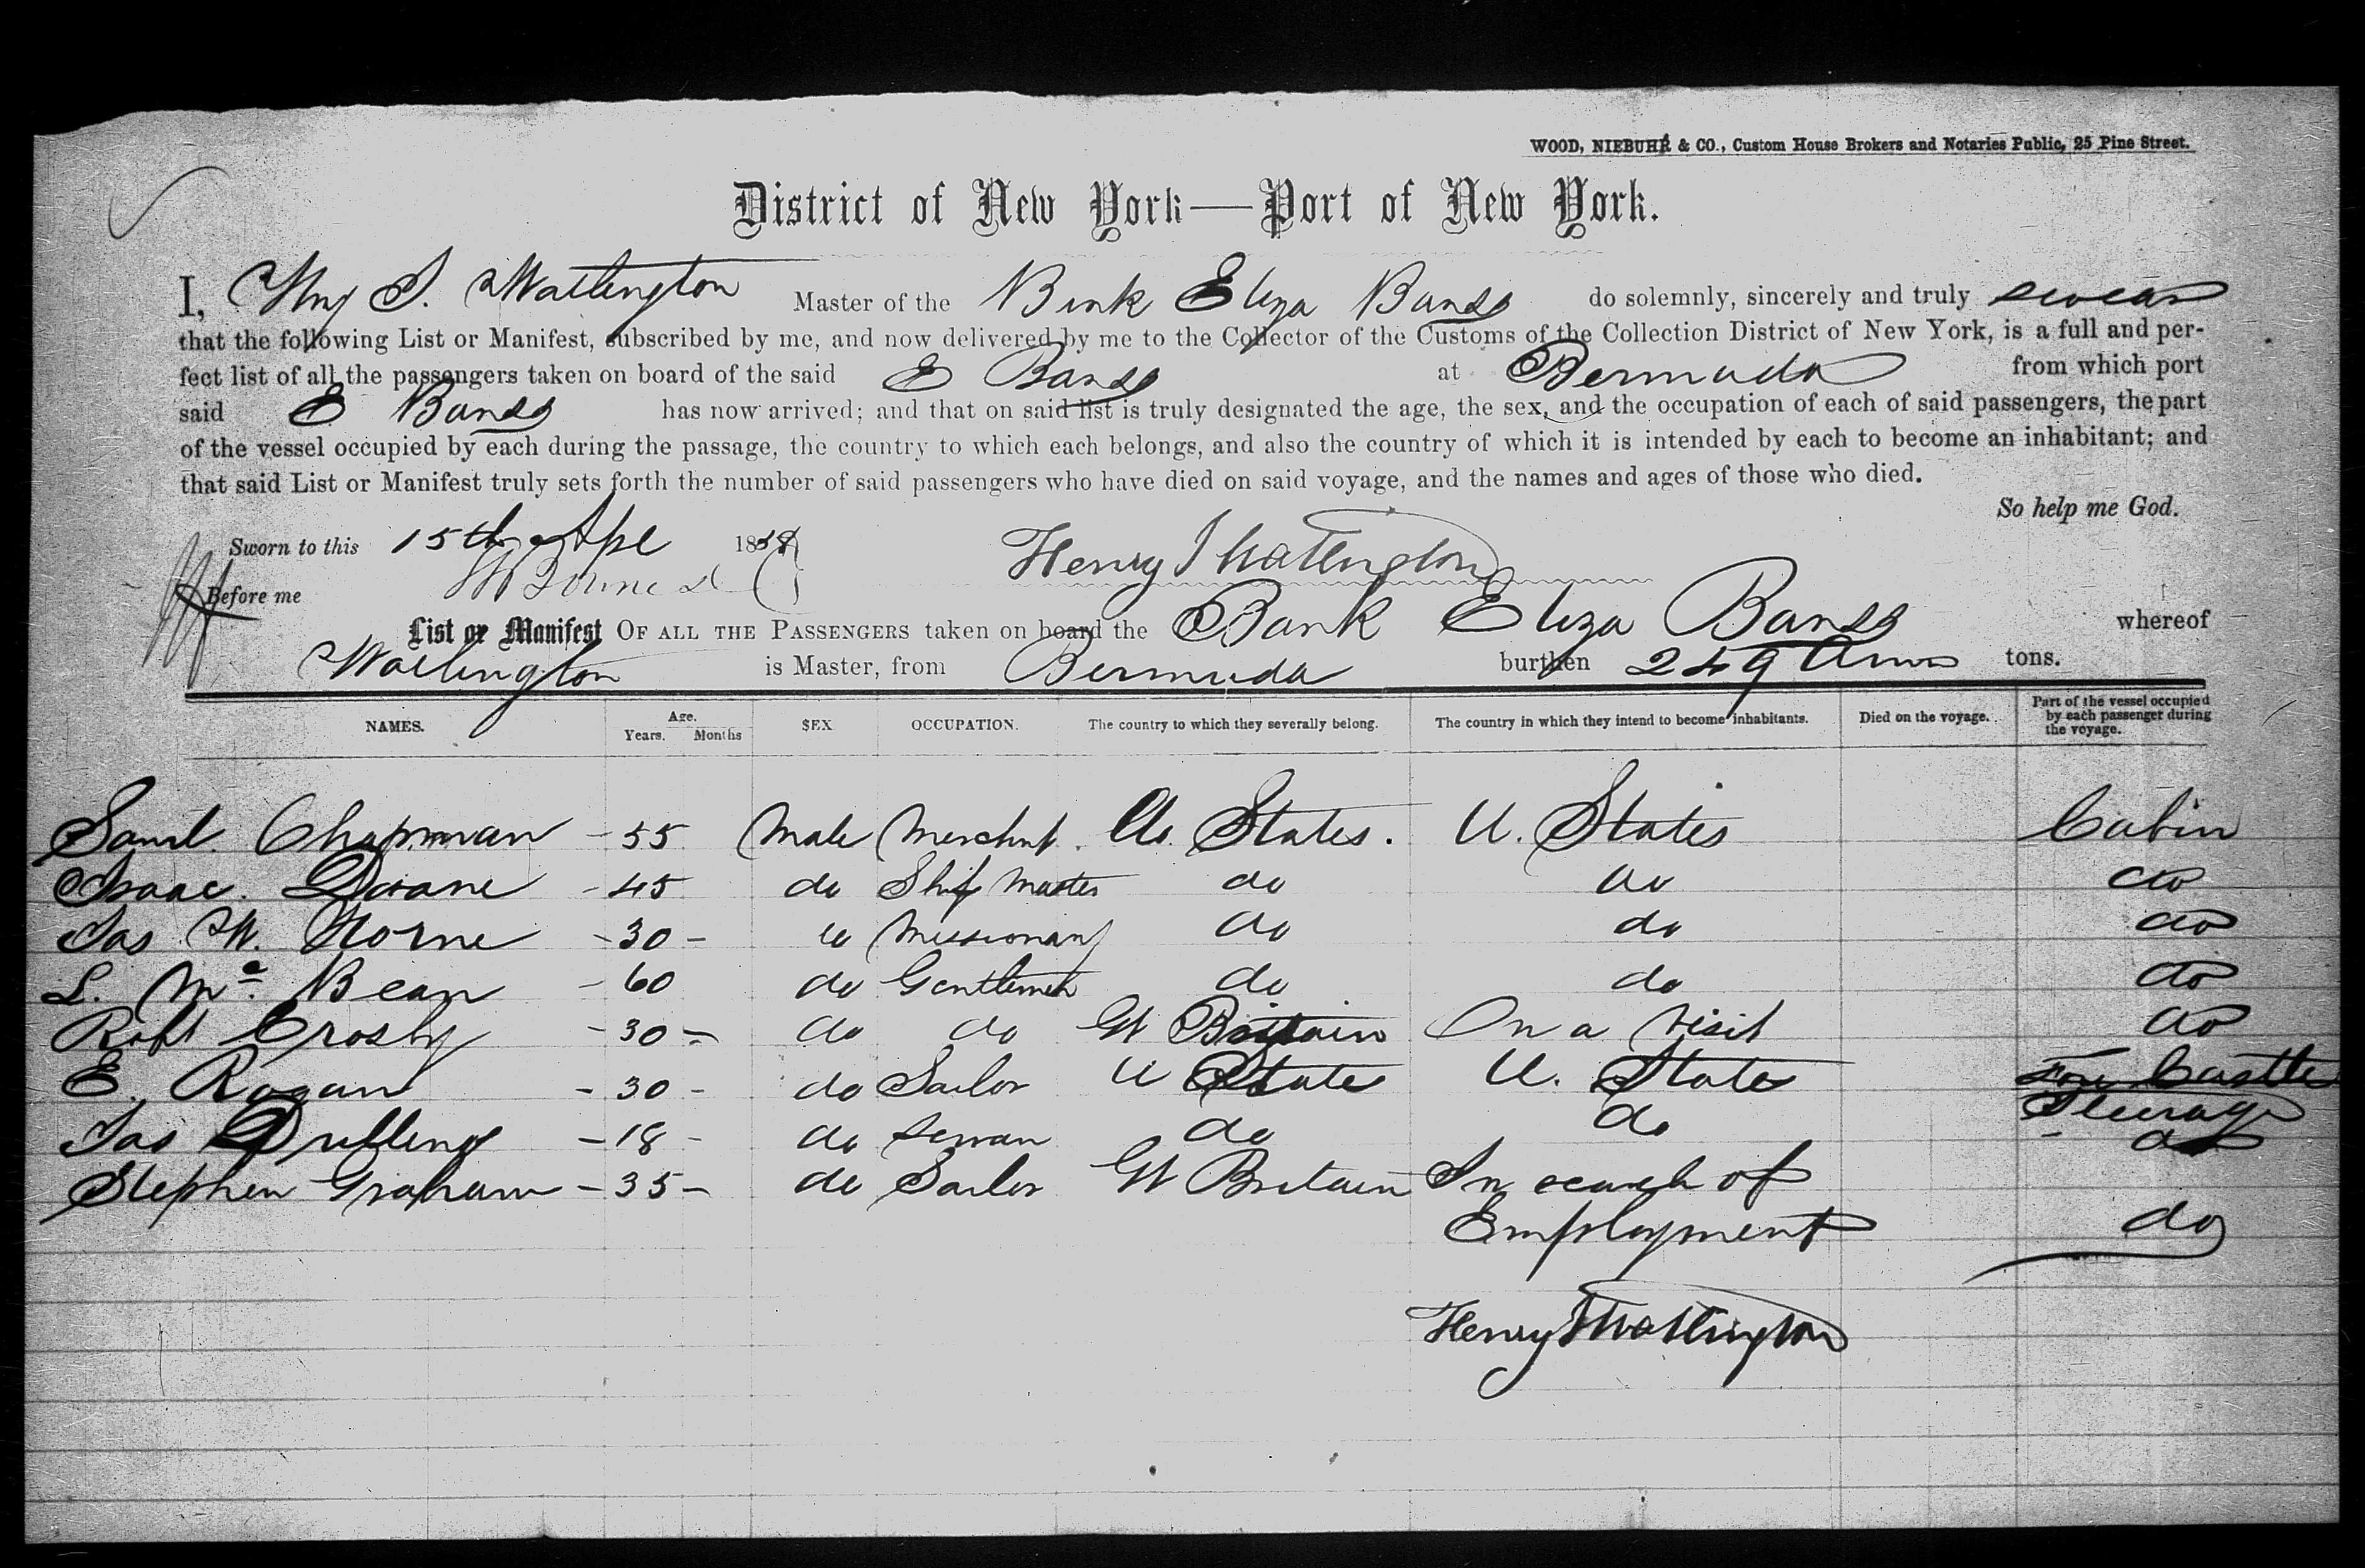 WOOD, NIEBUHR & CO., Custom House Brokers and Notaries Public, 25 Pine Street.
District of New York—Port of New York.
I, Hny S. Watlington Master of the Bark Eliza Barss do solemnly, sincerely and truly swear
that the following List or Manifest, subscribed by me, and now delivered by me to the Collector of the Customs of the Collection District of New York, is a full and per-
fect list of all the passengers taken on board of the said E Barss at Bermuda from which port
said E Barss has now arrived; and that on said list is truly designated the age, the sex, and the occupation of each of said passengers, the part
of the vessel occupied by each during the passage, the country to which each belongs, and also the country of which it is intended by each to become an inhabitant; and
that said List or Manifest truly sets forth the number of said passengers who have died on said voyage, and the names and ages of those who died.
So help me God.
Sworn to this 15th Apl 185 Henry Watlington
Before me
List or Manifest OF ALL THE PASSENGERS taken on board the Bark Eliza Barss whereof
Watlington is Master, from Bermuda burthen 249 tons.
NAMES. Age. Years. Months SEX OCCUPATION. The country to which they severally belong. The country in which they intend to become inhabitants. Died on the voyage. Part of the vessel occupied by each passenger during the voyage.
Saml. Chapman - 55 Male Merchnt. U. States. U. States Cabin
Isaac. Doane - 45 do Ship Master do do do
Jas W. Horne - 30 - do Missionary do do do
L. Mc. Bean - 60 do Gentleman do do do
Robt Crosby - 30 - do do Gt Britain On a visit do
E. Rogan - 30 - do Sailor U States U. States Fore Castle
Steerage
Jas - 18 - do do do do
Stephen Graham - 35 - do Sailor Gt Britain In search of
Employment do
Henry Watlington